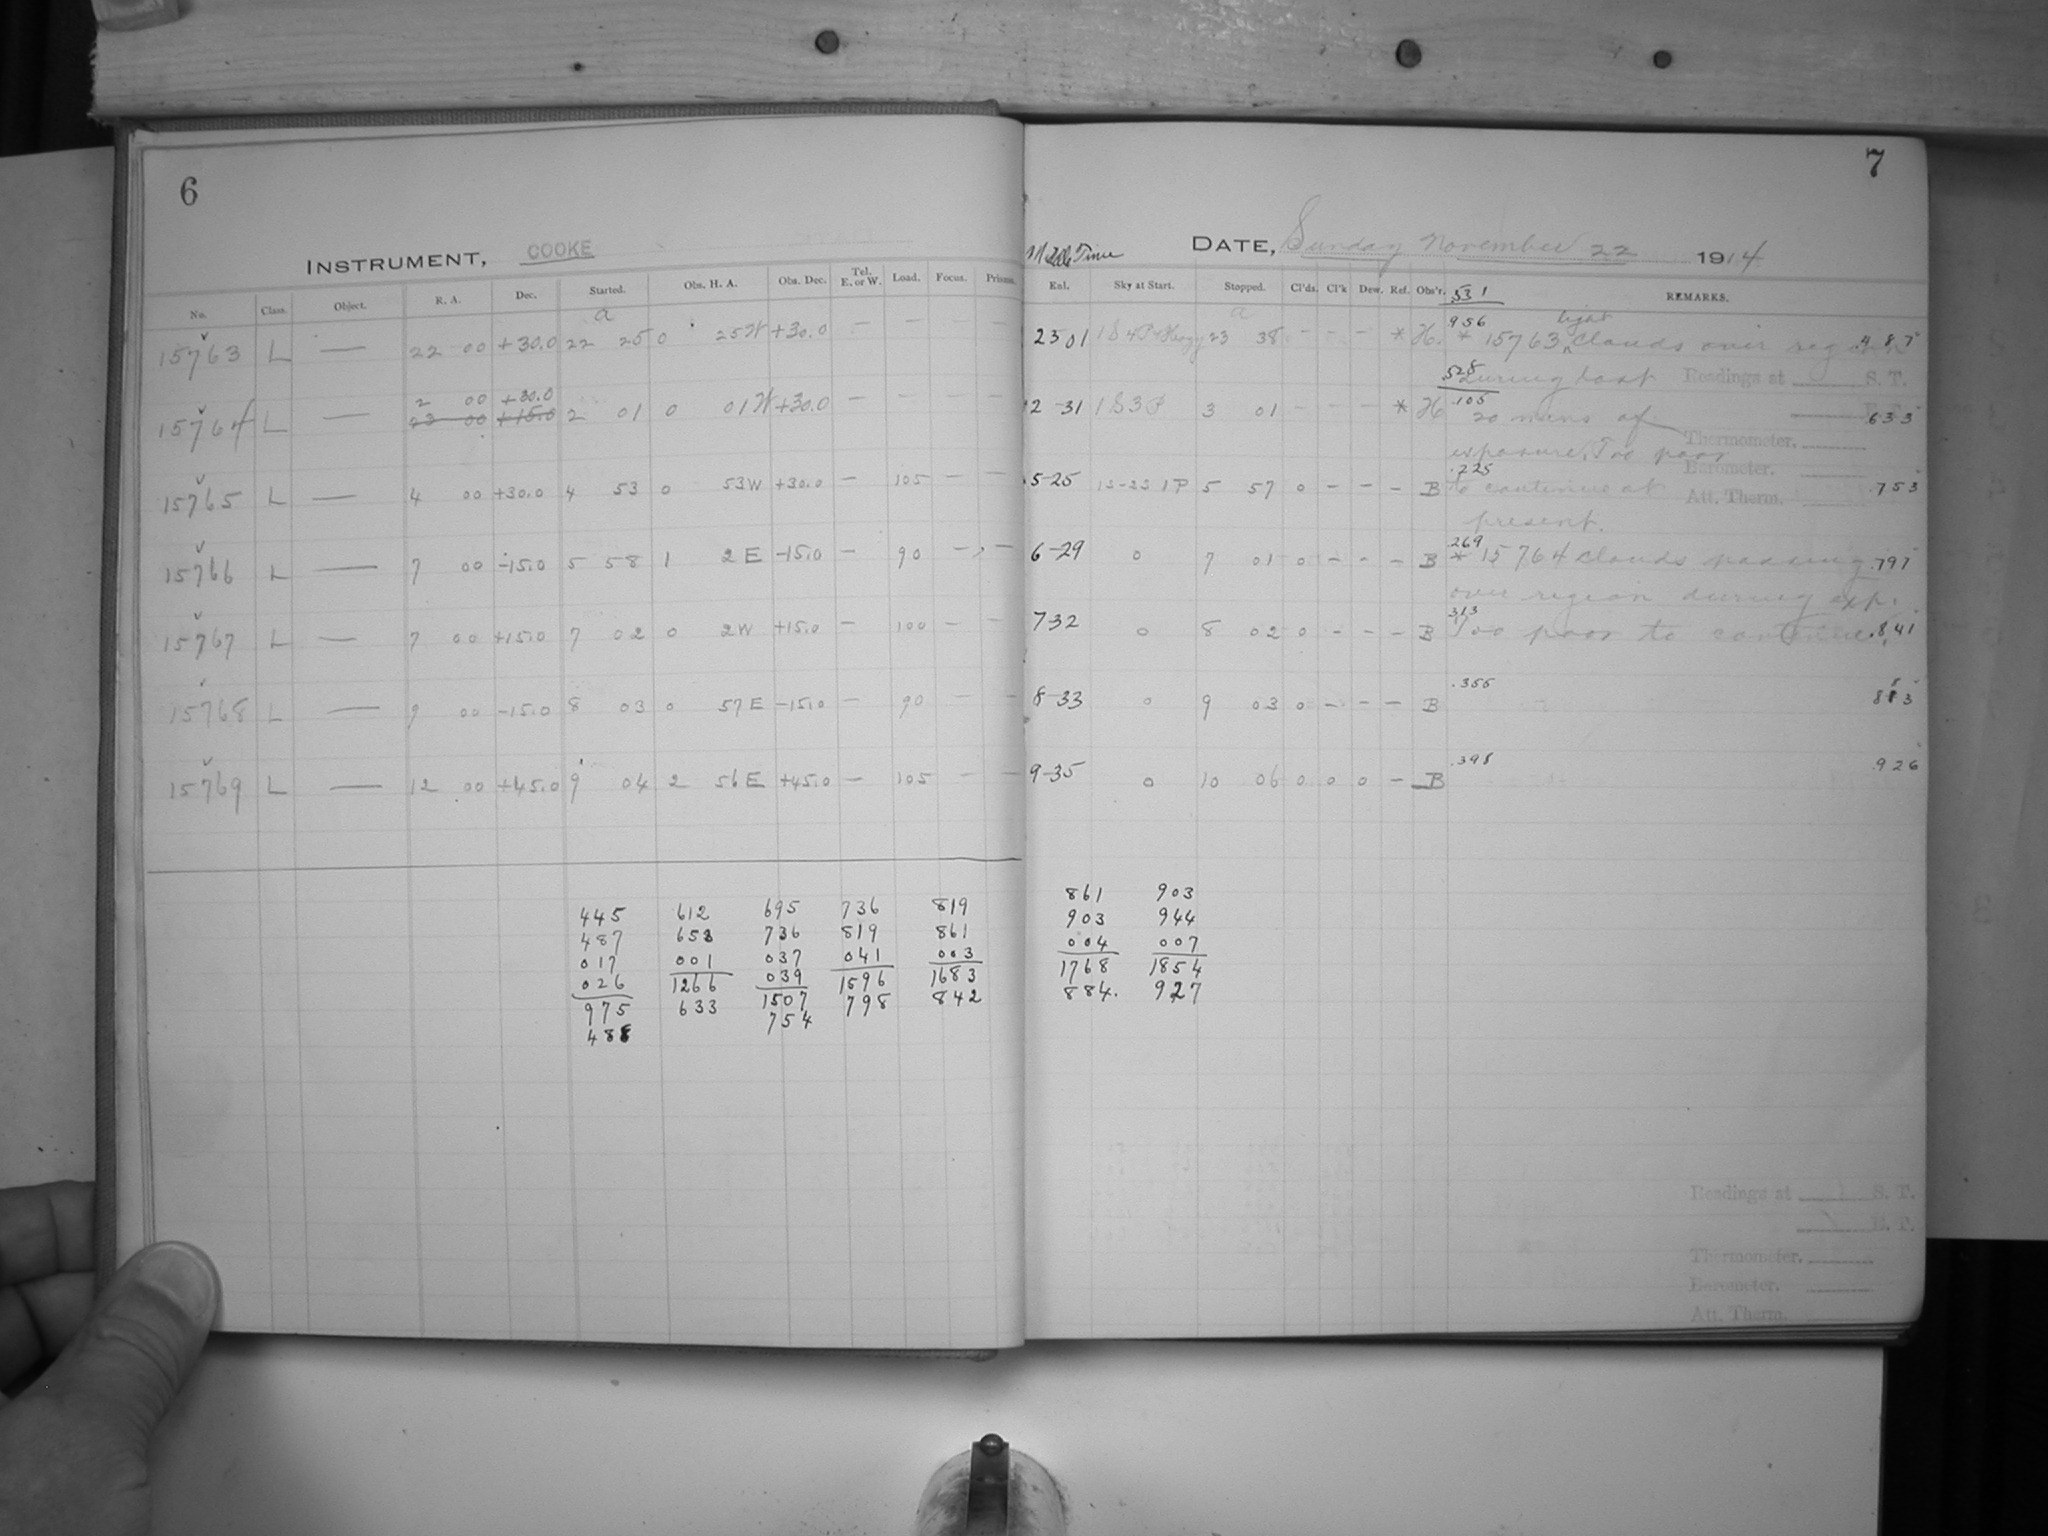 6
INSTRUMENT, COOKE
No. Class. Object. R. A. Dec. Started. Obs. H. A. Obs. Dec. Tel. E. or W. Load. Focus.
a
15763 L — 22 00 +30.0 22 25 0 25 W +30.0 — — — —
2 00 +30.0
15764 L — 23 00 +15.0 2 01 0 01 W +30.0 — — — —
15765 L — 4 00 +30.0 4 53 0 53 W +30.0 — 105 — —
15766 L — 7 00 -15.0 5 58 1 2 E -15.0 — 90 — —
15767 L — 7 00 +15.0 7 02 0 2 W +15.0 — 100 — —
15768 L — 9 00 -15.0 8 03 0 57 E -15.0 — 90 — —
15769 L — 12 00 +45.0 9 04 2 56 E +45.0 — 105 — —
445 612 695 736 819
487 653 736 819 861
017 001 037 041 003
026 1266 039 1596 1683
975 633 1507 798 842
488 754
7
Middle Time DATE, Sunday November 22 1914
Enl. Sky at Start. Stopped. Cl'ds. Cl'k Dew. Ref. Obs'r. REMARKS.
531
a
.956 light
23 01 23 38 - - - * H. * 15763 clouds over region .487
.528 during last Readings at S. T.
2-31 1S3P 3 01 - - - * H .105 20 mins of 633
Thermometer.
exposure. Too poor
Barometer.
5-25 1S-2S 1P 5 57 0 - - - B .225 to continue at Att. Therm. .753
present.
6-29 0 7 01 0 - - - B .269 * 15764 clouds passing .797
over region during exp.
7 32 0 8 02 0 - - - B .313 Too poor to continue. .841
8-33 0 9 03 0 - - - B .355
9-35 0 10 06 0 0 0 - B .398 .926
861 903
903 944
004 007
1768 1854
884. 927
Readings at S. T.
Thermometer.
Barometer.
Att. Therm.